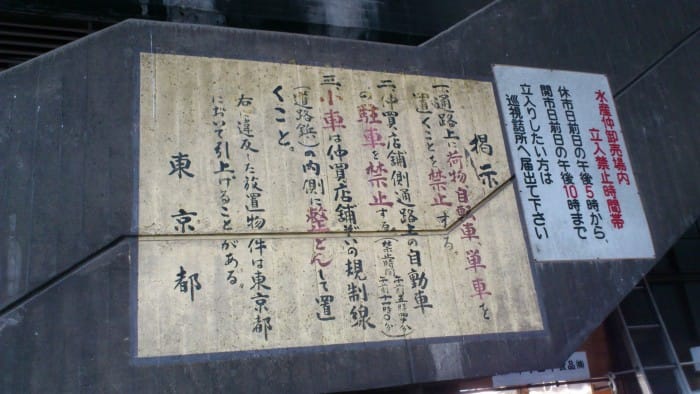 掲示
一、通路上に荷物、自動車、単車を
置くことを禁止する。
二、仲買店舗側通路上の自動車
の駐車を禁止する
三、小車は仲買店舗ぞいの規制線
(道路鋲)の内側に整とんして置
くこと。
右に違反した放置物件は東京都
において引上げることがある。
東京都
水産仲卸売場内
立入禁止時間帯
休市日前日の午後5時から、
開市日前日の午後10時まで
立入りしたい方は
巡視詰所へ届出て下さい
食品㈱